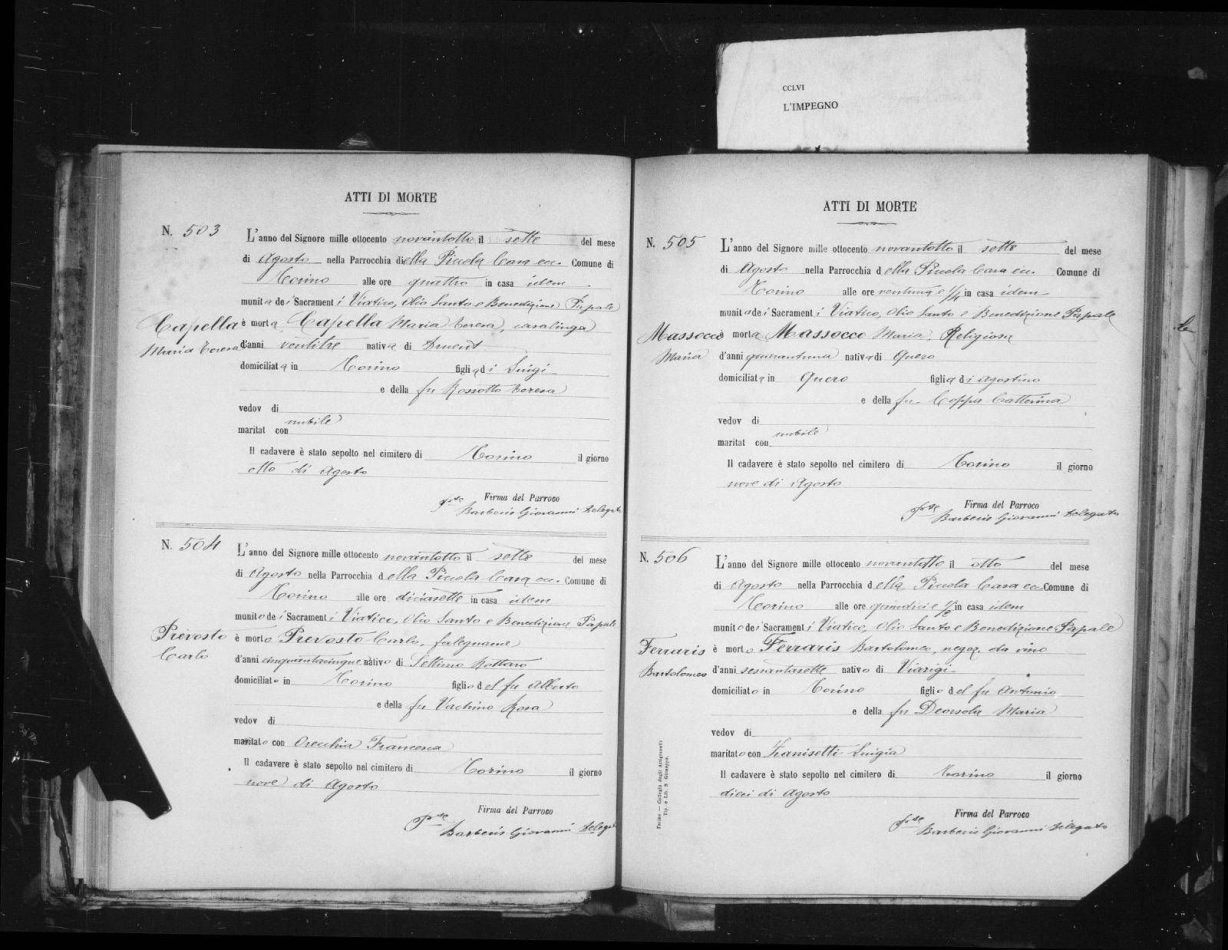 CCLVI
L'IMPEGNO
ATTI DI MORTE
N. 503
L'anno del Signore mille ottocento novantotto il sette del mese
di Agosto nella Parrocchia della Piccola Casa ecc. Comune di
Torino alle ore quattro in casa idem
munita dei Sacramenti Viatico, Olio Santo e Benedizione Papale
Capella
Maria Teresa
è morta Capella Maria Teresa, casalinga
d'anni ventitre nativa di Druent
domiciliata in Torino figlia di Luigi
e della fu Rossotto Teresa
vedov di
nubile
maritat con
Il cadavere è stato sepolto nel cimitero di Torino il giorno
otto di Agosto
Firma del Parroco
Barberis Giovanni delegato
N. 504
L'anno del Signore mille ottocento novantotto il sette del mese
di Agosto nella Parrocchia della Piccola Casa ecc. Comune di
Torino alle ore diciasette in casa idem
munito dei Sacramenti Viatico, Olio Santo e Benedizione Papale
Prevosto
Carlo
è morto Prevosto Carlo, falegname
d'anni cinquantacinque nativo di Settimo Rottaro
domiciliato in Torino figlio del fu Alberto
e della fu Vachino Rosa
vedov di
maritato con Orecchia Francesca
Il cadavere è stato sepolto nel cimitero di Torino il giorno
nove di Agosto
Firma del Parroco
Barberis Giovanni delegato
ATTI DI MORTE
N. 505
L'anno del Signore mille ottocento novantotto il sette del mese
di Agosto nella Parrocchia della Piccola Casa ecc. Comune di
Torino alle ore ventuna e 1/4 in casa idem
munita dei Sacramenti Viatico, Olio Santo e Benedizione Papale
Massocco
Maria
è morta Massocco Maria, Religiosa
d'anni quarantuna nativa di Quero
domiciliata in Quero figlia di Agostino
e della fu Coppa Catterina
vedov di
nubile
maritat con
Il cadavere è stato sepolto nel cimitero di Torino il giorno
nove di Agosto
Firma del Parroco
Barberis Giovanni delegato
N. 506
L'anno del Signore mille ottocento novantotto il otto del mese
di Agosto nella Parrocchia della Piccola Casa ecc. Comune di
Torino alle ore quindici e 1/2 in casa idem
munito dei Sacramenti Viatico, Olio Santo e Benedizione Papale
Ferraris
Bartolomeo
è morto Ferraris Bartolomeo, negoz. da vino
d'anni sessantasette nativo di Viarigi
domiciliato in Torino figlio del fu Antonio
e della fu Maria
vedov di
maritato con Luigia
Il cadavere è stato sepolto nel cimitero di Torino il giorno
dieci di Agosto
Firma del Parroco
Barberis Giovanni delegato
Torino — Collegio degli Artigianelli
Tip. e Lib. S. Giuseppe.